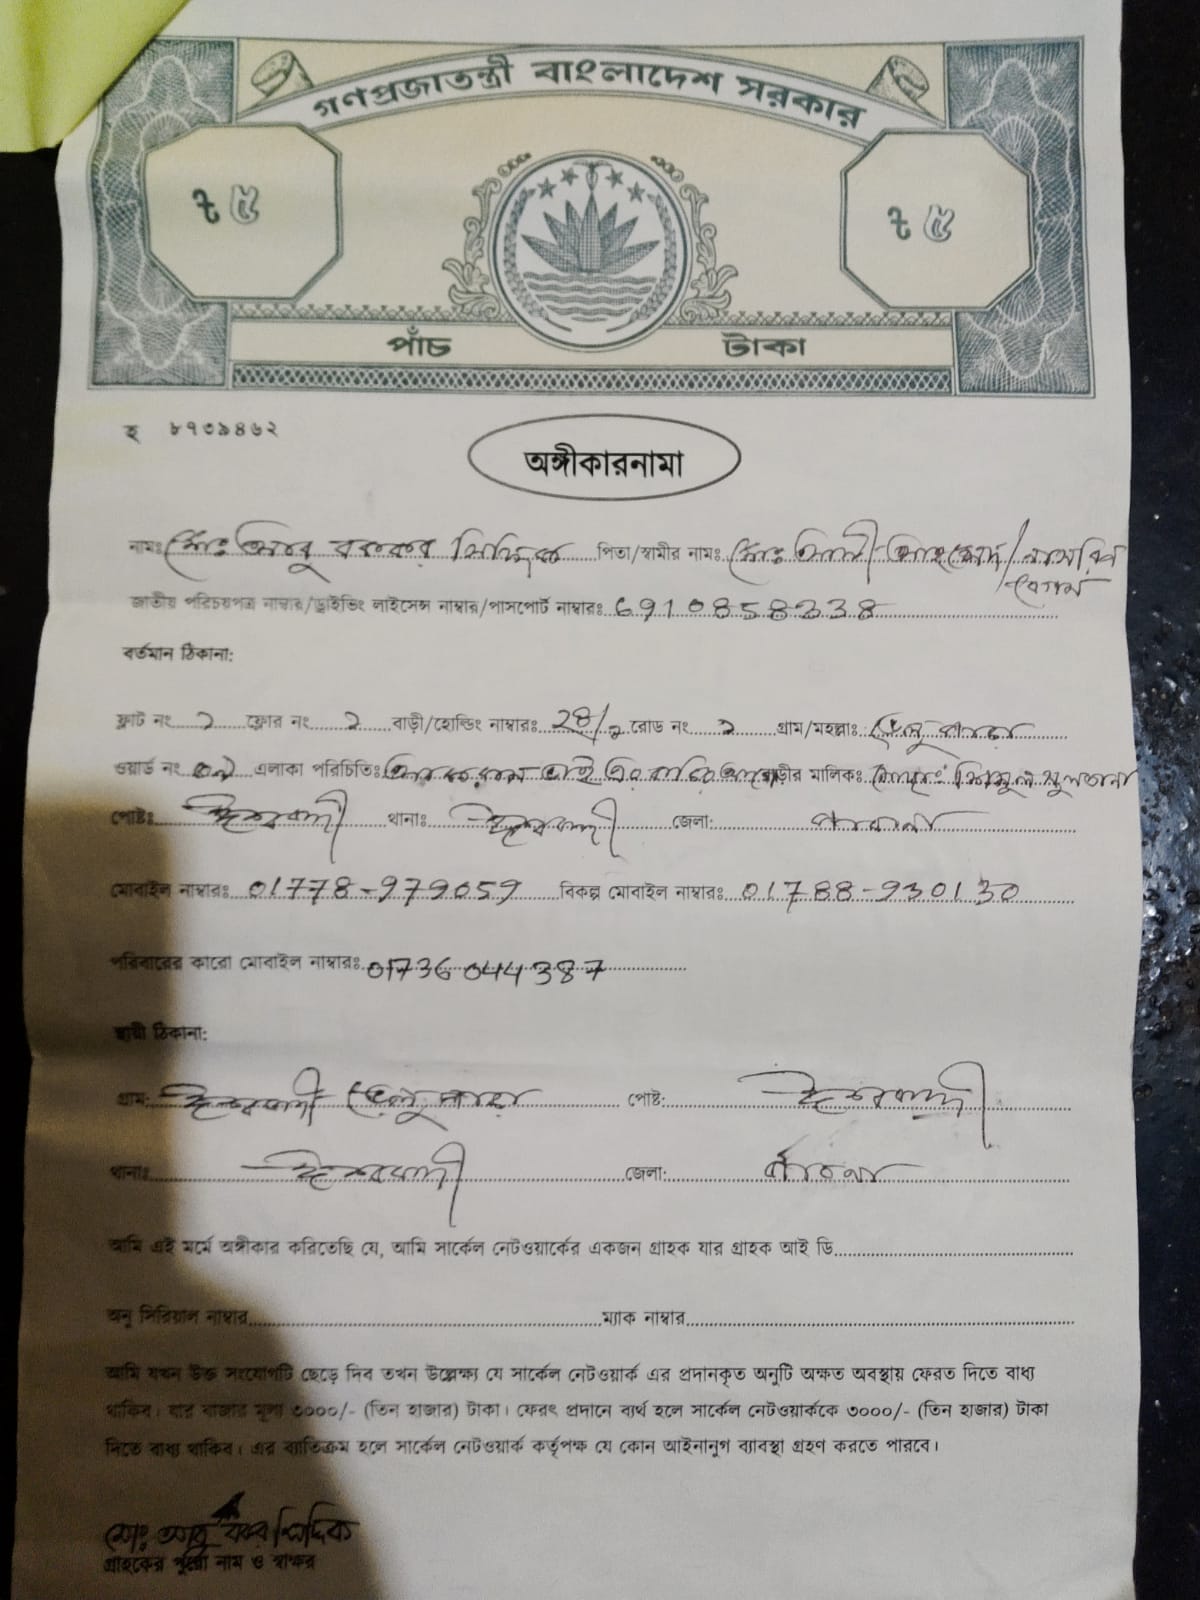 গণপ্রজাতন্ত্রী বাংলাদেশ সরকার
৳ ৫
৳ ৫
পাঁচ টাকা
হ ৮৭৩৯৪৬২
অঙ্গীকারনামা
নামঃ মোঃ আবু বককর সিদ্দিক পিতা/স্বামীর নামঃ মোঃ আলী
বেগম
জাতীয় পরিচয়পত্র নাম্বার/ড্রাইভিং লাইসেন্স নাম্বার/পাসপোর্ট নাম্বারঃ 6910858338
বর্তমান ঠিকানা:
ফ্লাট নং ১ ফ্লোর নং বাড়ী/হোল্ডিং নাম্বারঃ রোড নং ১ গ্রাম/মহল্লাঃ
ওয়ার্ড নং এলাকা পরিচিতিঃ বাড়ীর মালিকঃ সুলতানা
পোষ্টঃ ঈশ্বরদী থানাঃ ঈশ্বরদী জেলা: পাবনা
মোবাইল নাম্বারঃ 01778-979059 বিকল্প মোবাইল নাম্বারঃ 01788-930130
পরিবারের কারো মোবাইল নাম্বারঃ 01736044387
স্থায়ী ঠিকানা:
গ্রাম: ঈশ্বরদী পোষ্ট: ঈশ্বরদী
থানাঃ ঈশ্বরদী জেলা: পাবনা
আমি এই মর্মে অঙ্গীকার করিতেছি যে, আমি সার্কেল নেটওয়ার্কের একজন গ্রাহক যার গ্রাহক আই ডি
অনু সিরিয়াল নাম্বার ম্যাক নাম্বার
আমি যখন উক্ত সংযোগটি ছেড়ে দিব তখন উল্লেক্ষ্য যে সার্কেল নেটওয়ার্ক এর প্রদানকৃত অনুটি অক্ষত অবস্থায় ফেরত দিতে বাধ্য
থাকিব। যার বাজার মূল্য ৩০০০/- (তিন হাজার) টাকা। ফেরৎ প্রদানে ব্যর্থ হলে সার্কেল নেটওয়ার্ককে ৩০০০/- (তিন হাজার) টাকা
দিতে বাধ্য থাকিব। এর ব্যাতিক্রম হলে সার্কেল নেটওয়ার্ক কর্তৃপক্ষ যে কোন আইনানুগ ব্যাবস্থা গ্রহণ করতে পারবে।
মোঃ আবু বকর সিদ্দিক
গ্রাহকের পুরো নাম ও স্বাক্ষর